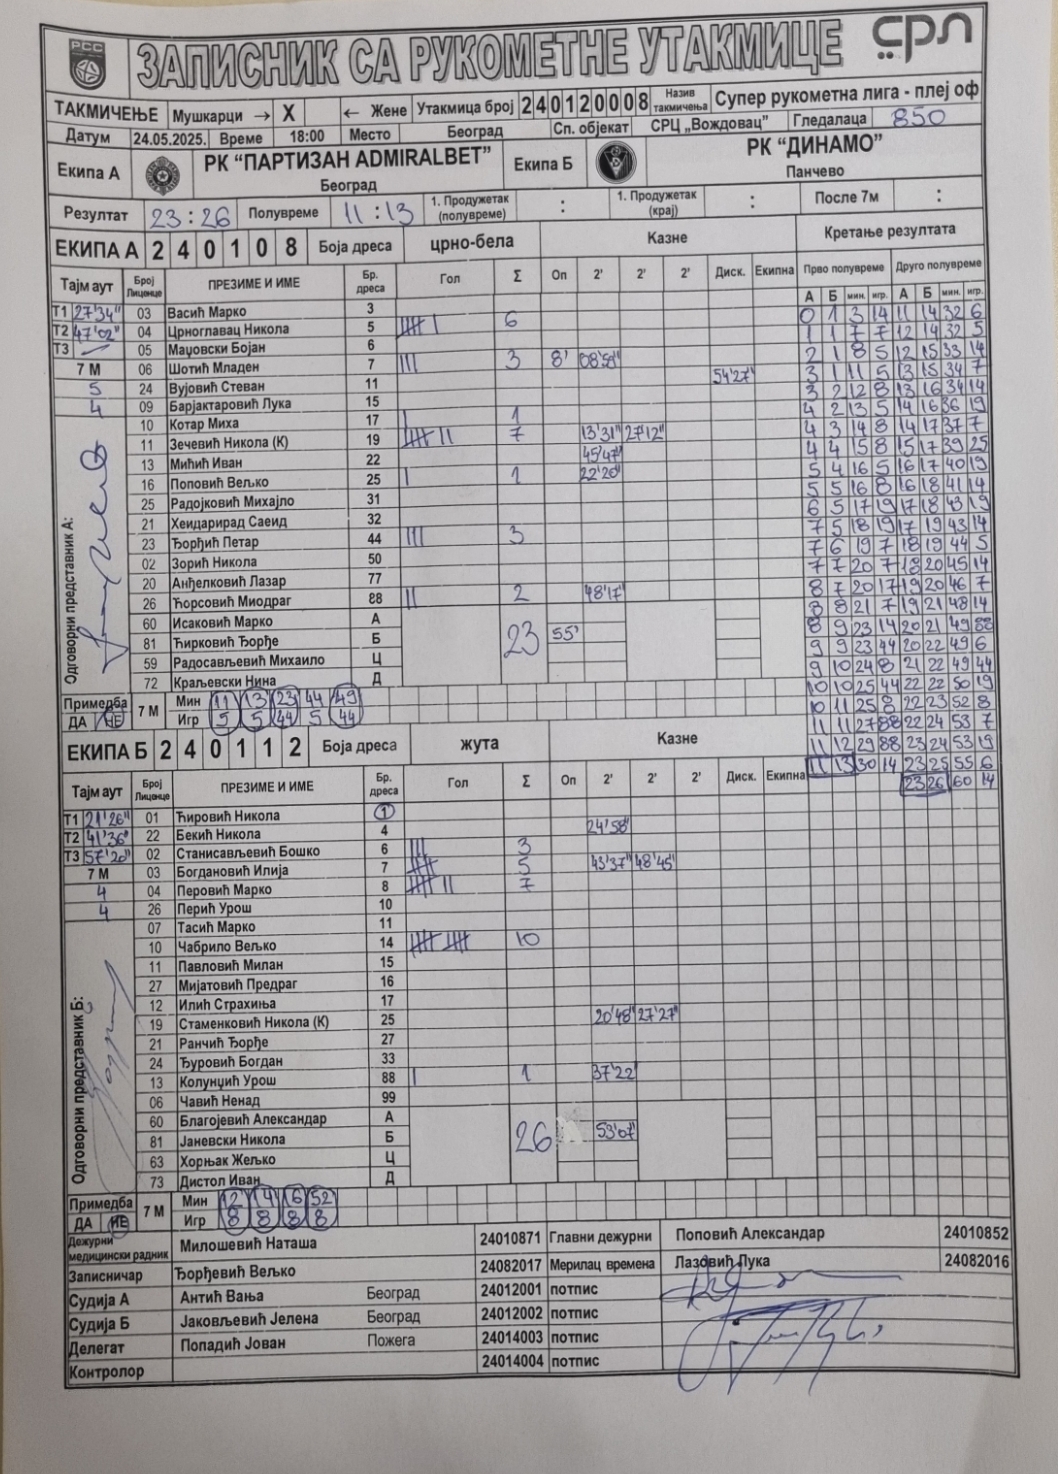 РСС
ЗАПИСНИК СА РУКОМЕТНЕ УТАКМИЦЕ
СРЛ
ТАКМИЧЕЊЕ Мушкарци → X ← Жене Утакмица број 240120008 Назив такмичења Супер рукометна лига - плеј оф
Датум 24.05.2025. Време 18:00 Место Београд Сп. објекат СРЦ „Вождовац” Гледалаца 850
Екипа А РК “ПАРТИЗАН ADMIRALBET” Београд Екипа Б РК “ДИНАМО” Панчево
Резултат 23 : 26 Полувреме 11 : 13 1. Продужетак (полувреме) : 1. Продужетак (крај) : После 7м :
ЕКИПА А 2 4 0 1 0 8 Боја дреса црно-бела Казне Кретање резултата
Тајм аут Број Лиценце ПРЕЗИМЕ И ИМЕ Бр. дреса Гол Σ Оп 2' 2' 2' Диск. Екипна Прво полувреме Друго полувреме
А Б мин. игр. А Б мин. игр.
T1 27'34" 03 Васић Марко 3
T2 47'02" 04 Црноглавац Никола 5 6
T3 05 Мацовски Бојан 6
7 М 06 Шотић Младен 7 3 8' 08'58"
5 24 Вујовић Стеван 11 54'27"
4 09 Барјактаровић Лука 15
10 Котар Миха 17 1
11 Зечевић Никола (К) 19 7 13'31" 27'12"
13 Мићић Иван 22 45'47"
16 Поповић Вељко 25 1 22'20"
25 Радојковић Михајло 31
21 Хеидарирад Саеид 32
23 Ђорђић Петар 44 3
02 Зорић Никола 50
20 Анђелковић Лазар 77
26 Ћорсовић Миодраг 88 2 48'17"
60 Исаковић Марко А
81 Ћирковић Ђорђе Б 23 55'
59 Радосављевић Михаило Ц
72 Краљевски Нина Д
Одговорни представник А:
0 1 3 14 11 14 32 6
1 1 7 7 12 14 32 5
2 1 8 5 12 15 33 14
3 1 11 5 13 15 34 7
3 2 12 8 13 16 34 14
4 2 13 5 14 16 36 19
4 3 14 8 14 17 37 7
4 4 15 8 15 17 39 25
5 4 16 5 16 17 40 19
5 5 16 8 16 18 41 14
6 5 17 19 17 18 43 19
7 5 18 19 17 19 43 14
7 6 19 7 18 19 44 5
7 7 20 7 18 20 45 14
8 7 20 17 19 20 46 7
8 8 21 7 19 21 48 14
8 9 23 14 20 21 49 88
9 9 23 44 20 22 49 6
9 10 24 8 21 22 49 44
10 10 25 44 22 22 50 19
10 11 25 8 22 23 52 8
11 11 27 88 22 24 53 7
11 12 29 88 23 24 53 19
11 13 30 14 23 25 55 6
23 26 60 14
Примедба ДА НЕ 7 М Мин 11 13 23 44 49
Игр 5 5 44 5 44
ЕКИПА Б 2 4 0 1 1 2 Боја дреса жута Казне
Тајм аут Број Лиценце ПРЕЗИМЕ И ИМЕ Бр. дреса Гол Σ Оп 2' 2' 2' Диск. Екипна
T1 21'26" 01 Ћировић Никола 1
T2 41'36" 22 Бекић Никола 4 24'58"
T3 57'20" 02 Станисављевић Бошко 6 3
7 М 03 Богдановић Илија 7 5 43'37" 48'45"
4 04 Перовић Марко 8 7
4 26 Перић Урош 10
07 Тасић Марко 11
10 Чабрило Вељко 14 10
11 Павловић Милан 15
27 Мијатовић Предраг 16
12 Илић Страхиња 17
19 Стаменковић Никола (К) 25 20'48" 27'27"
21 Ранчић Ђорђе 27
24 Ђуровић Богдан 33
13 Колунџић Урош 88 1 37'22"
06 Чавић Ненад 99
60 Благојевић Александар А
81 Јаневски Никола Б 26 53'07"
63 Хорњак Жељко Ц
73 Дистол Иван Д
Одговорни представник Б:
Примедба ДА НЕ 7 М Мин 12 14 16 52
Игр 8 8 8 8
Дежурни медицински радник Милошевић Наташа 24010871 Главни дежурни Поповић Александар 24010852
Записничар Ђорђевић Вељко 24082017 Мерилац времена Лазовић Лука 24082016
Судија А Антић Вања Београд 24012001 потпис
Судија Б Јаковљевић Јелена Београд 24012002 потпис
Делегат Попадић Јован Пожега 24014003 потпис
Контролор 24014004 потпис